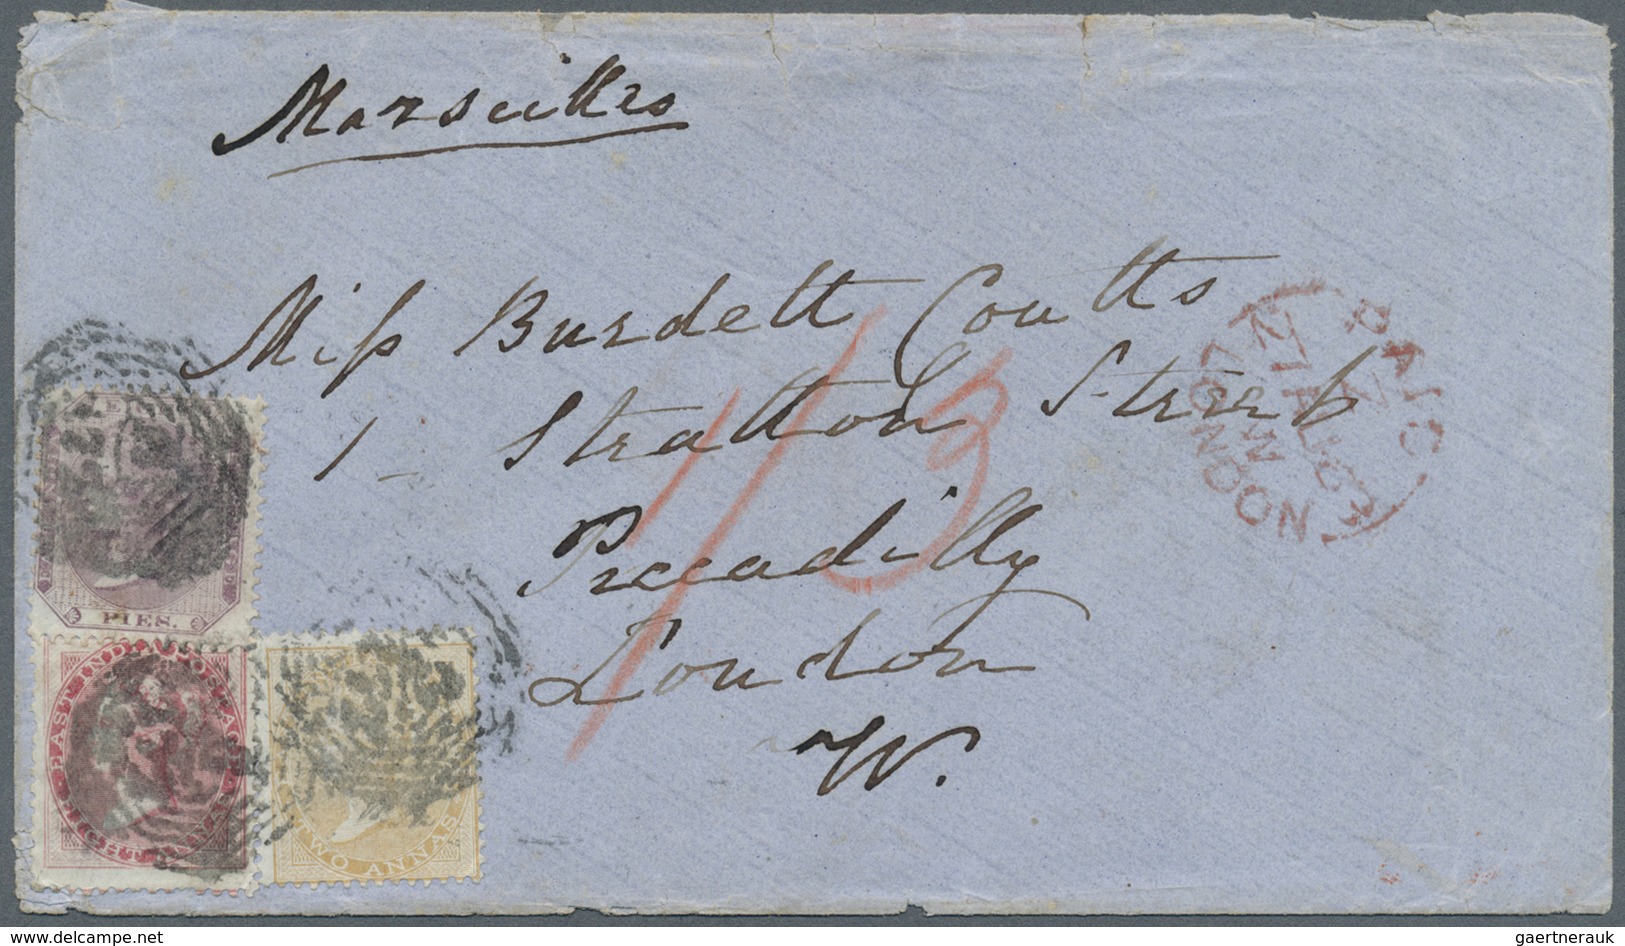 Marseilles
Miss Burdett Coutts
1 - Stratton Street
Piccadilly
London
W.
1/3
PAID
LONDON
PIES.
EAST INDIA POSTAGE
EIGHT ANNAS
TWO ANNAS
delcampe.net
gaertnerauk